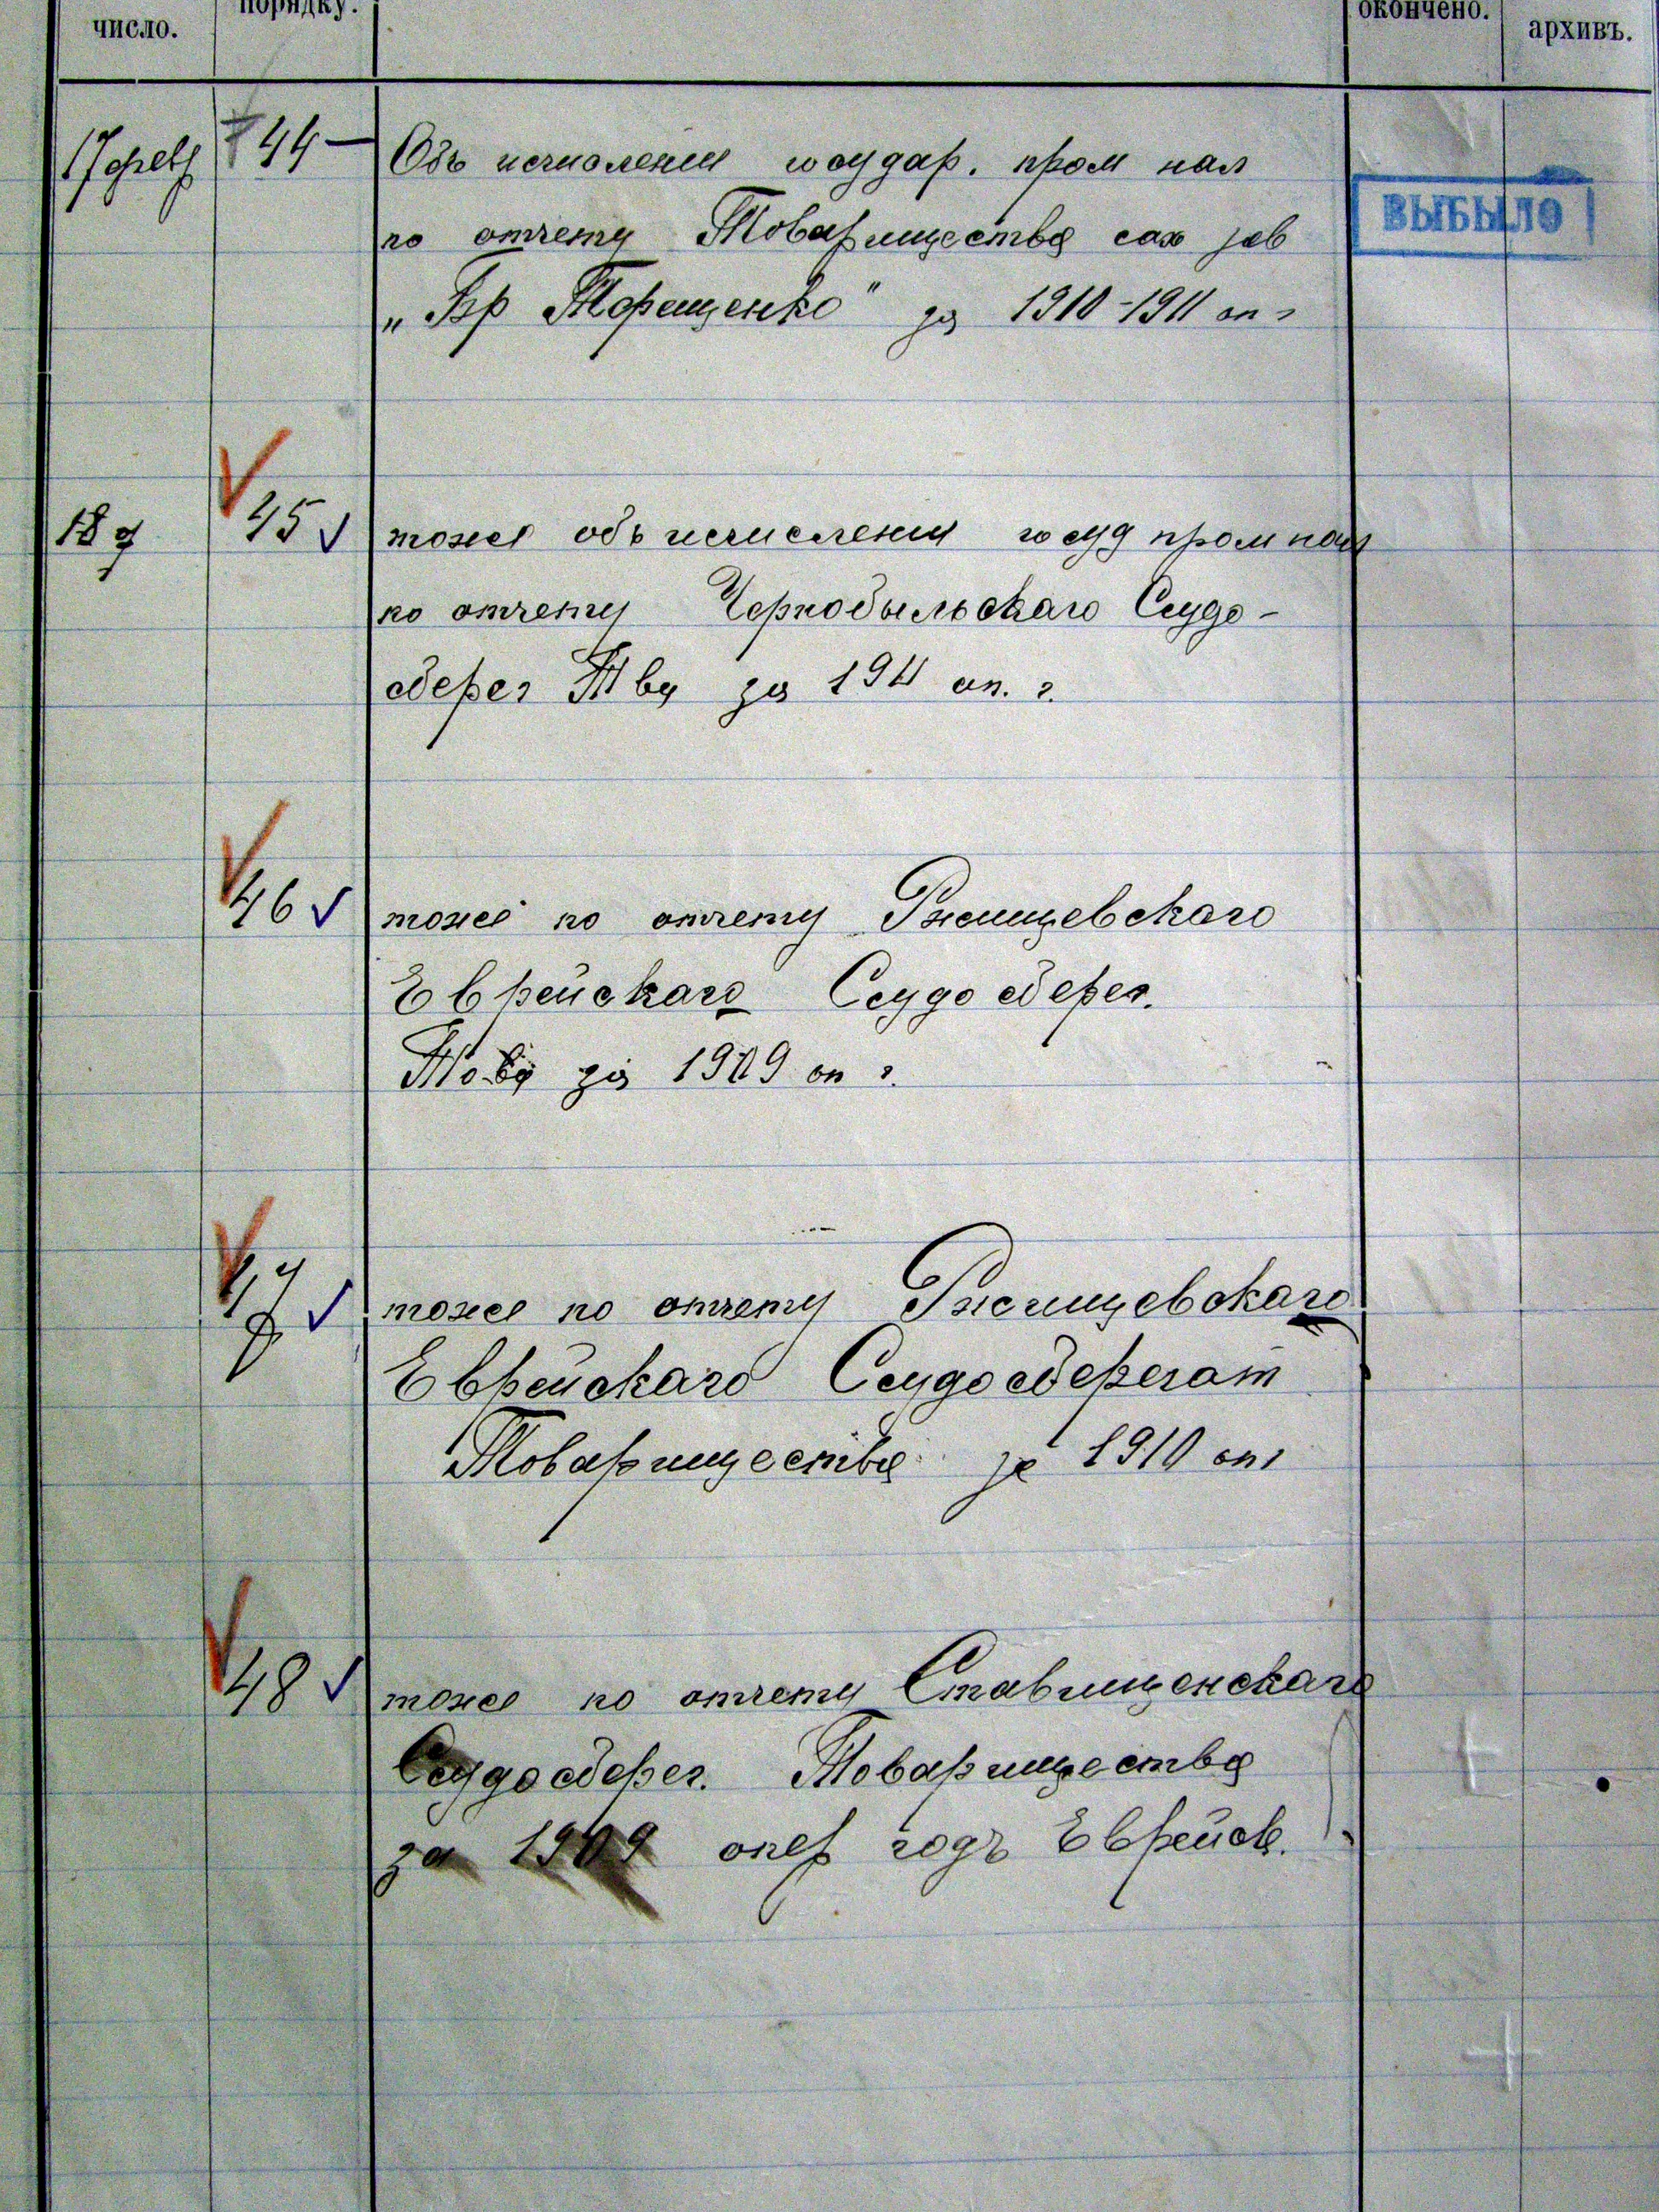 число.
порядку.
окончено.
архивъ.
17 февр 44 — Объ исчислении государ. пром нал
по отчету Товарищества сах зав
ВЫБЫЛО
„Бр Терещенко" за 1910-1911 оп г
18 45 тоже объ исчислении госуд пром нал
по отчету Чернобыльскаго Ссудо-
сберег Т ва за 1911 оп. г.
46 тоже по отчету Ржищевскаго
Еврейскаго Ссудо сберег.
То-ва за 1909 оп г.
47 тоже по отчету Ржищевскаго
Еврейскаго Ссудосберегат
Товарищества за 1910 оп г
48 тоже по отчету Ставищенскаго
Ссудосберег. Товарищества
за 1909 опер годъ Еврейск.